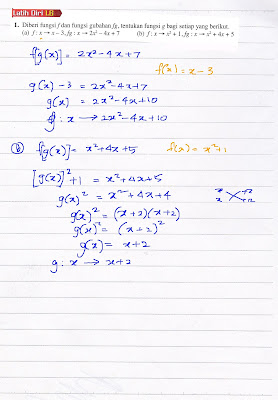 Latih Diri 1.8
1. Diberi fungsi f dan fungsi gubahan fg, tentukan fungsi g bagi setiap yang berikut.
(a) f : x → x − 3, fg : x → 2x² − 4x + 7 (b) f : x → x² + 1, fg : x → x² + 4x + 5
f[g(x)] = 2x² - 4x + 7
f(x) = x - 3
g(x) - 3 = 2x² - 4x + 7
g(x) = 2x² - 4x + 10
g : x → 2x² - 4x + 10
(b) f[g(x)] = x² + 4x + 5 f(x) = x² + 1
[g(x)]² + 1 = x² + 4x + 5
g(x)² = x² + 4x + 4
x +2
x +2
g(x)² = (x+2)(x+2)
g(x)² = (x+2)²
g(x) = x + 2
g : x → x + 2